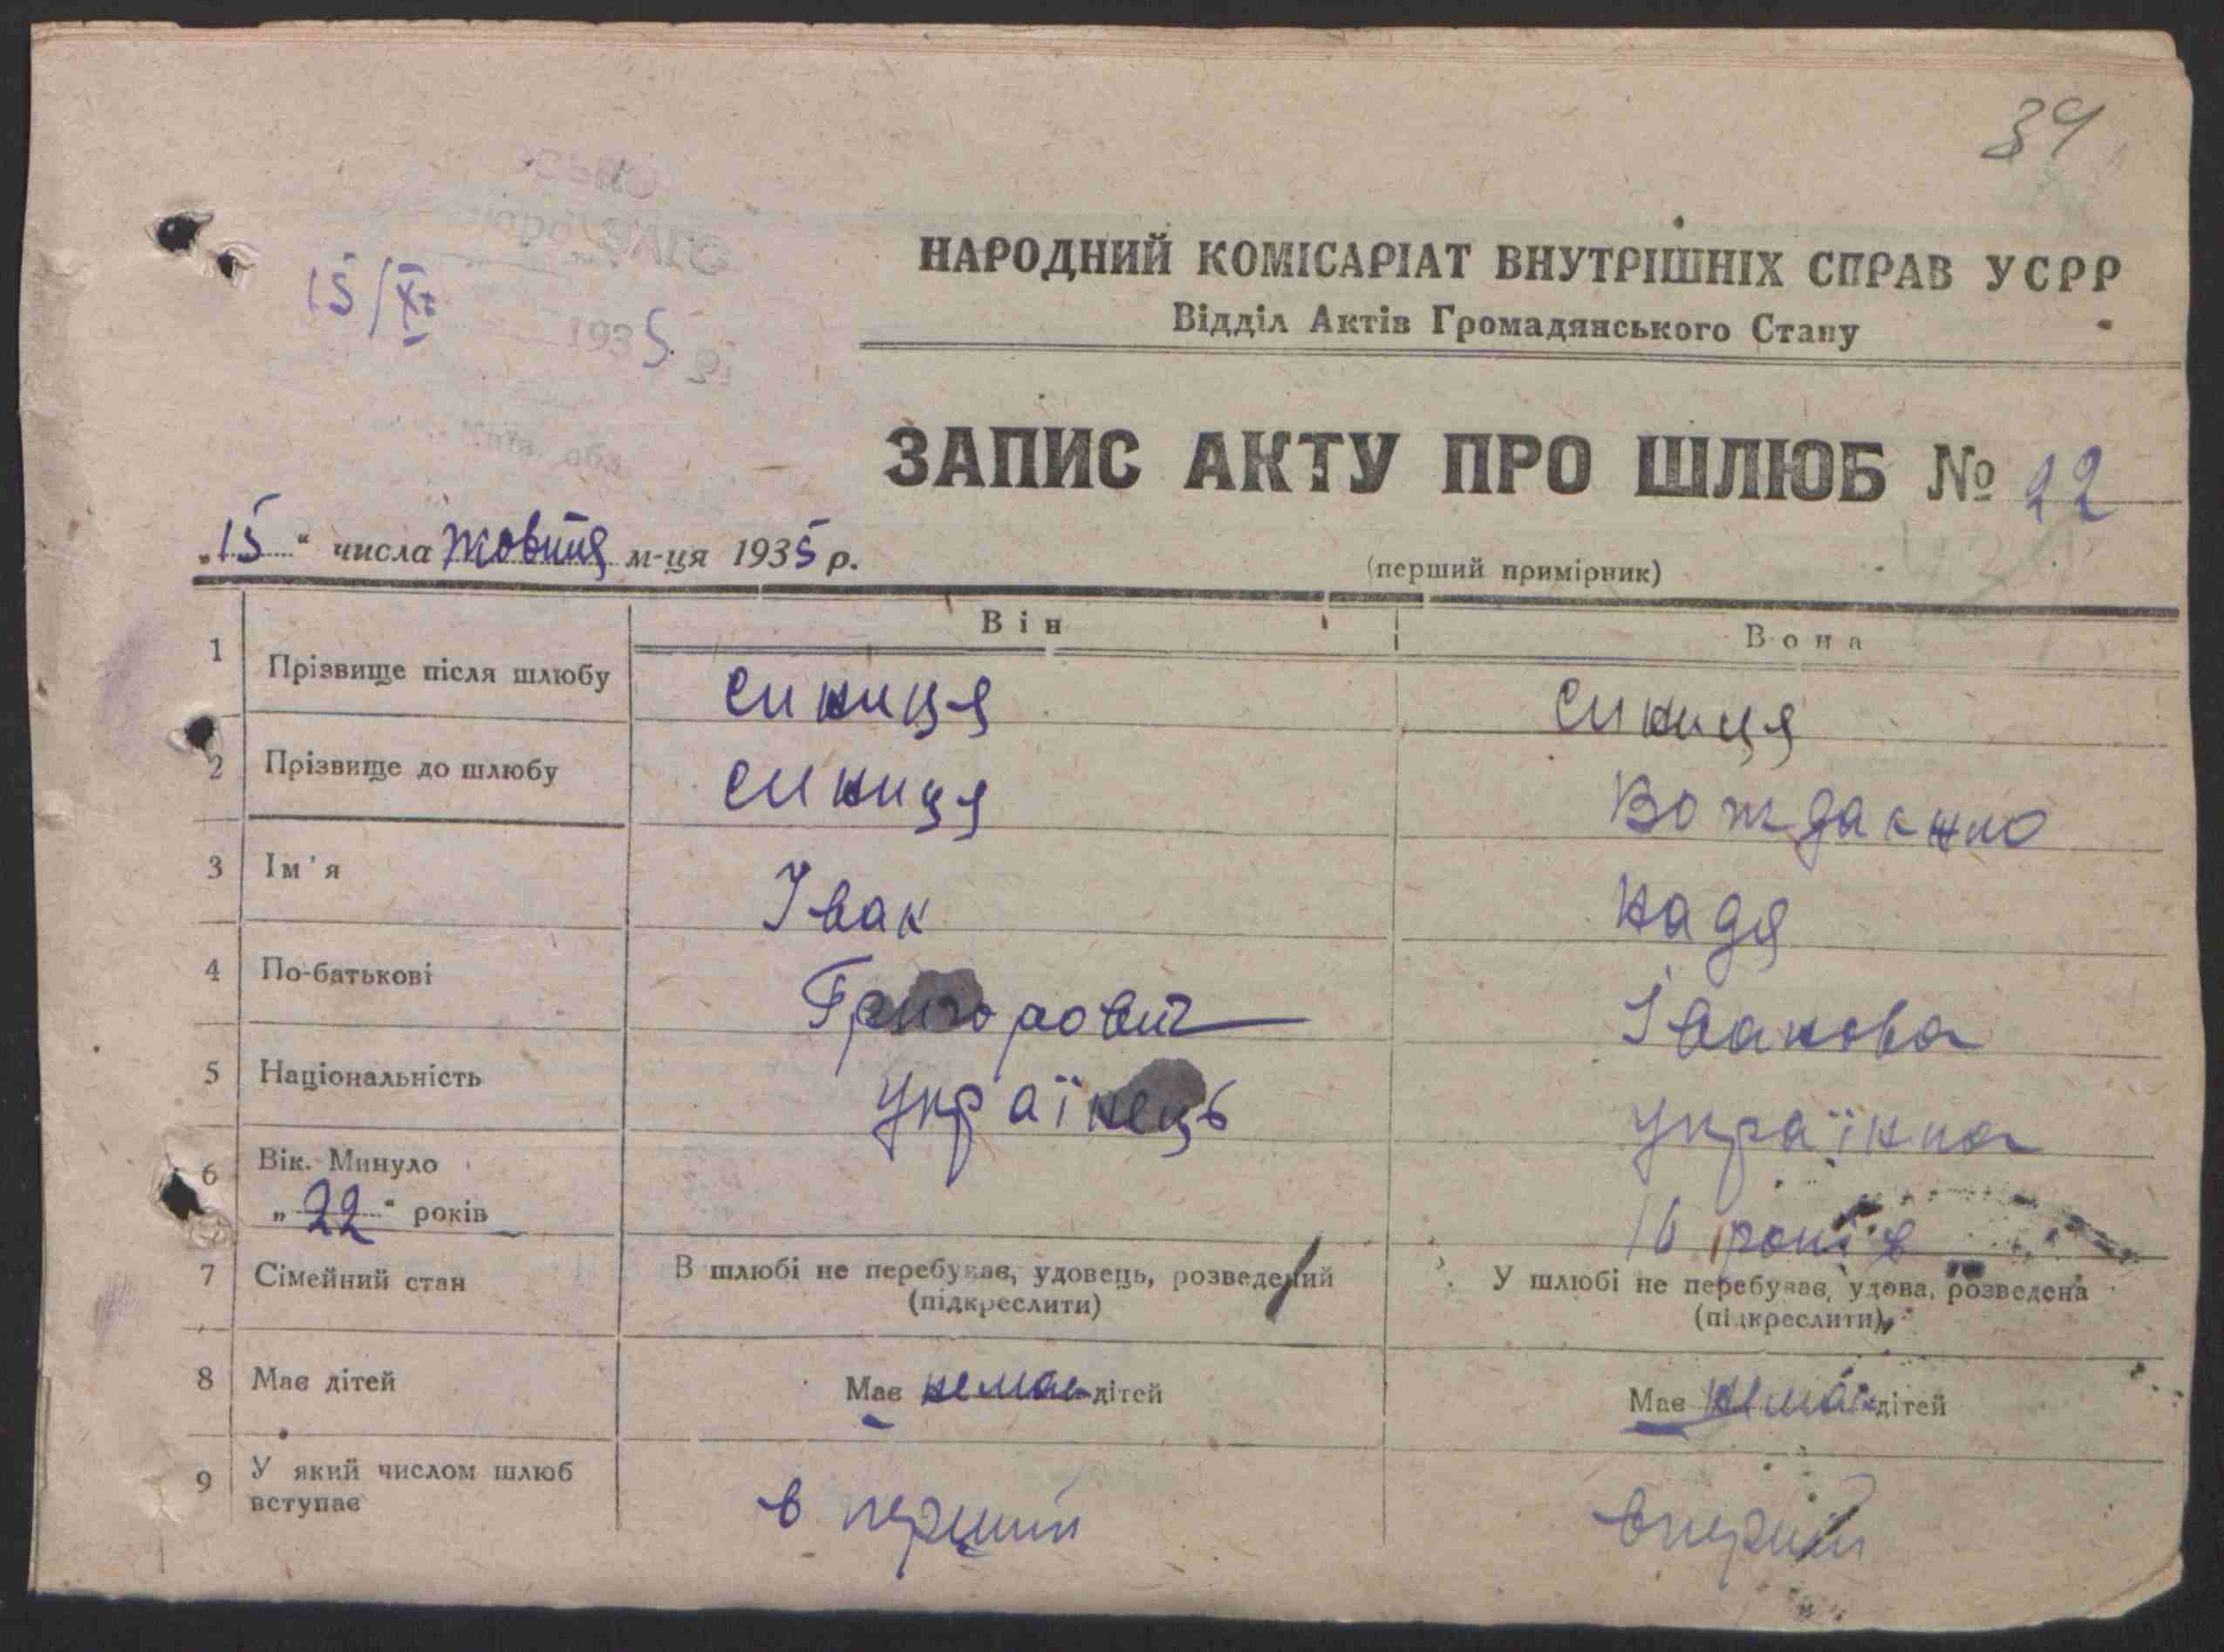 39
15/XI 1935
НАРОДНИЙ КОМІСАРІАТ ВНУТРІШНІХ СПРАВ УСРР
Відділ Актів Громадянського Стану
Київ. обл.
ЗАПИС АКТУ ПРО ШЛЮБ № 22
„15“ числа жовтня м-ця 1935 р.
(перший примірник)
Він Вона
1 Прізвище після шлюбу Синиця Синиця
2 Прізвище до шлюбу Синиця
3 Ім'я Іван Надя
4 По-батькові Григорович Іванова
5 Національність Українець Українка
6 Вік. Минуло
„22“ років 16 років
7 Сімейний стан В шлюбі не перебував, удовець, розведений У шлюбі не перебував, удова, розведена
(підкреслити) (підкреслити)
8 Має дітей Має немає дітей Має немає дітей
9 У який числом шлюб
вступає в перший в перший